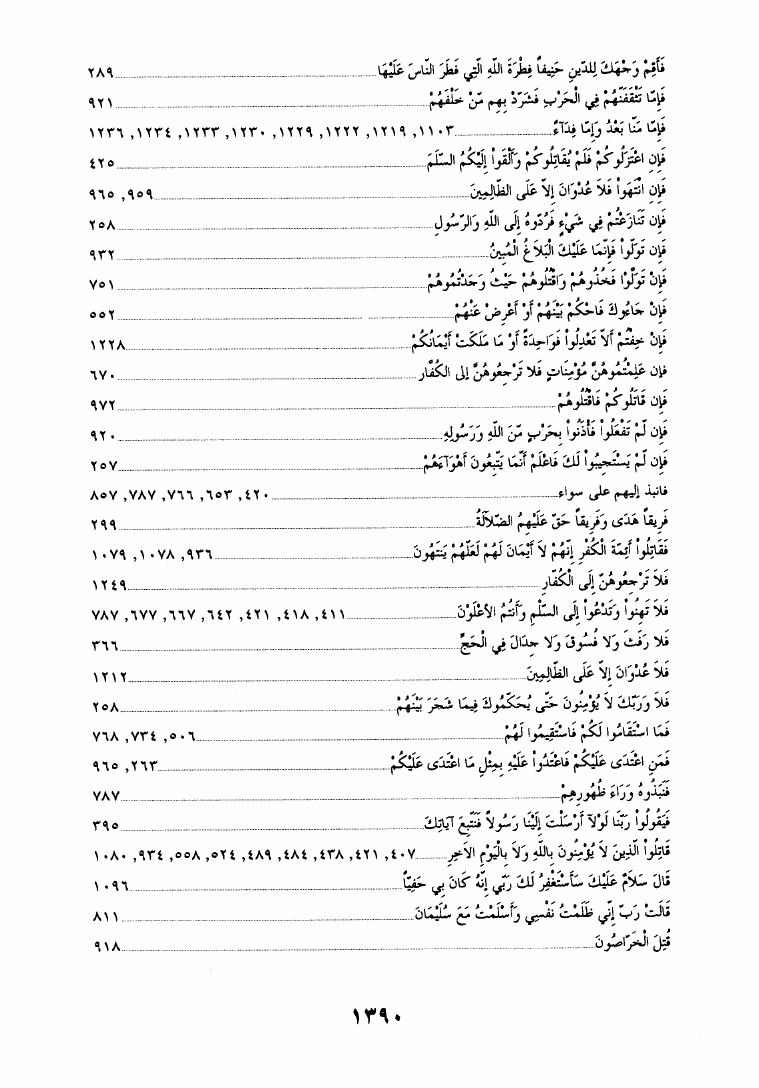 فَأَقِمْ وَجْهَكَ لِلدِّينِ حَنِيفاً فِطْرَةَ اللَّهِ الَّتِي فَطَرَ النَّاسَ عَلَيْهَا ... ٢٨٩
فَإِمَّا تَثْقَفَنَّهُمْ فِي الْحَرْبِ فَشَرِّدْ بِهِم مَّنْ خَلْفَهُمْ ... ٩٢١
فَإِمَّا مَنًّا بَعْدُ وَإِمَّا فِدَآءً ... ١١٠٣, ١٢١٩, ١٢٢٢, ١٢٢٩, ١٢٣٠, ١٢٣٣, ١٢٣٤, ١٢٣٦
فَإِنِ اعْتَزَلُوكُمْ فَلَمْ يُقَاتِلُوكُمْ وَأَلْقَواْ إِلَيْكُمُ السَّلَمَ ... ٤٢٥
فَإِنِ انْتَهَواْ فَلاَ عُدْوَانَ إِلاَّ عَلَى الظَّالِمِينَ ... ٩٥٩, ٩٦٥
فَإِن تَنَازَعْتُمْ فِي شَيْءٍ فَرُدُّوهُ إِلَى اللَّهِ وَالرَّسُولِ ... ٢٥٨
فَإِن تَوَلَّواْ فَإِنَّمَا عَلَيْكَ الْبَلَاغُ الْمُبِينُ ... ٩٣٢
فَإِنْ تَوَلَّوْا فَخُذُوهُمْ وَاقْتُلُوهُمْ حَيْثُ وَجَدْتُمُوهُمْ ... ٧٥١
فَإِنْ جَاءُوكَ فَاحْكُمْ بَيْنَهُمْ أَوْ أَعْرِضْ عَنْهُمْ ... ٥٥٢
فَإِنْ خِفْتُمْ أَلاَّ تَعْدِلُواْ فَوَاحِدَةً أَوْ مَا مَلَكَتْ أَيْمَانُكُمْ ... ١٢٢٨
فإن عَلِمْتُمُوهُنَّ مُؤْمِنَاتٍ فَلا تَرْجِعُوهُنَّ إلى الكُفَّار ... ٦٧٠
فَإِن قَاتَلُوكُمْ فَاقْتُلُوهُمْ ... ٩٧٢
فَإِن لَّمْ تَفْعَلُواْ فَأْذَنُواْ بِحَرْبٍ مِّنَ اللَّهِ وَرَسُولِهِ ... ٩٢٠
فَإِن لَّمْ يَسْتَجِيبُواْ لَكَ فَاعْلَمْ أَنَّمَا يَتَّبِعُونَ أَهْوَآءَهُمْ ... ٢٥٧
فانبذ إليهم على سواء ... ٤٢٠, ٦٥٣, ٧٦٦, ٧٨٧, ٨٥٧
فَرِيقاً هَدَى وَفَرِيقاً حَقَّ عَلَيْهِمُ الضَّلاَلَةُ ... ٢٩٩
فَقَاتِلُواْ أَئِمَّةَ الْكُفْرِ إِنَّهُمْ لاَ أَيْمَانَ لَهُمْ لَعَلَّهُمْ يَنتَهُونَ ... ٩٣٦, ١٠٧٨, ١٠٧٩
فَلاَ تَرْجِعُوهُنَّ إِلَى الْكُفَّارِ ... ١٢٤٩
فَلاَ تَهِنُواْ وَتَدْعُواْ إِلَى السَّلْمِ وَأَنتُمُ الأَعْلَوْنَ ... ٤١١, ٤١٨, ٤٢١, ٦٤٢, ٦٦٧, ٦٧٧, ٧٨٧
فَلا رَفَثَ وَلا فُسُوقَ وَلا جِدَالَ فِي الْحَجِّ ... ٣٦٦
فَلاَ عُدْوَانَ إِلاَّ عَلَى الظَّالِمِينَ ... ١٢١٢
فَلاَ وَرَبِّكَ لاَ يُؤْمِنُونَ حَتَّى يُحَكِّمُوكَ فِيمَا شَجَرَ بَيْنَهُمْ ... ٢٥٨
فَمَا اسْتَقَامُوا لَكُمْ فَاسْتَقِيمُوا لَهُمْ ... ٥٠٦, ٧٣٤, ٧٦٨
فَمَنِ اعْتَدَى عَلَيْكُمْ فَاعْتَدُواْ عَلَيْهِ بِمِثْلِ مَا اعْتَدَى عَلَيْكُمْ ... ٢٦٣, ٩٦٥
فَنَبَذُوهُ وَرَاءَ ظُهُورِهِمْ ... ٧٨٧
فَيَقُولُواْ رَبَّنَا لَوْلآ أَرْسَلْتَ إِلَيْنَا رَسُولاً فَنَتَّبِعَ آيَاتِكَ ... ٣٩٥
قَاتِلُواْ الَّذِينَ لاَ يُؤْمِنُونَ بِاللَّهِ وَلاَ بِالْيَوْمِ الآخِرِ ... ٤٠٧, ٤٢١, ٤٣٨, ٤٨٤, ٤٨٩, ٥٢٤, ٥٥٨, ٩٣٤, ١٠٨٠
قَالَ سَلاَمٌ عَلَيْكَ سَأَسْتَغْفِرُ لَكَ رَبِّي إِنَّهُ كَانَ بِي حَفِيّاً ... ١٠٩٦
قَالَتْ رَبِّ إِنِّي ظَلَمْتُ نَفْسِي وَأَسْلَمْتُ مَعَ سُلَيْمَانَ ... ٨١١
قُتِلَ الْخَرَّاصُونَ ... ٩١٨
١٣٩٠